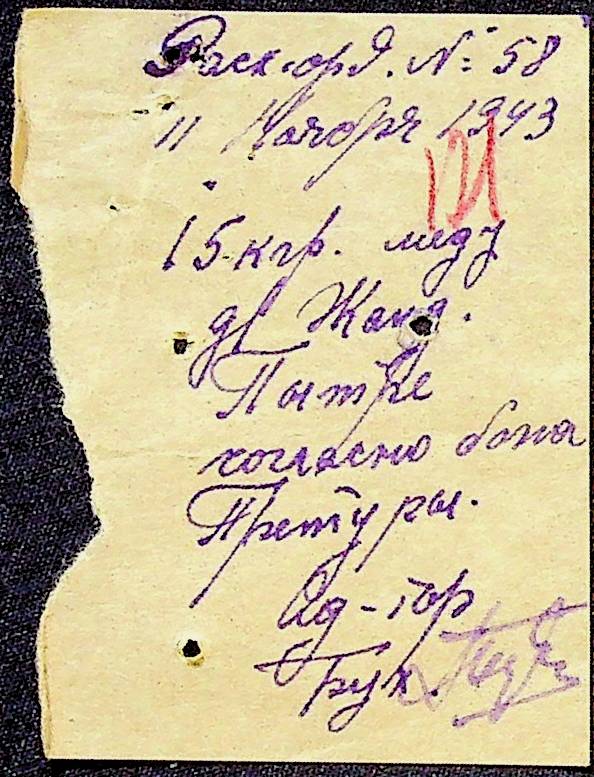 Расх. орд. № 58
11 Ноября 1943
121
15 кгр. меду
дл Жанд.
Пытре
согласно бона
Претуры.
Ад-тор
Бух.